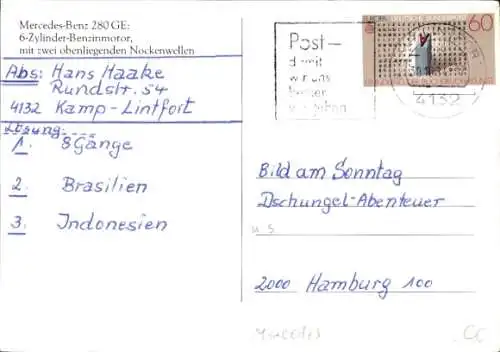 Mercedes-Benz 280 GE:
6-Zylinder-Benzinmotor,
mit zwei obenliegenden Nockenwellen
Abs: Hans Haake
Rundstr. 54
4132 Kamp-Lintfort
Lösung:
1. 8 Gänge
2. Brasilien
3. Indonesien
Post-
damit
wir uns
besser
verstehen
60
4132
Bild am Sonntag
Dschungel-Abenteuer
u s
2000 Hamburg 100
Mercedes